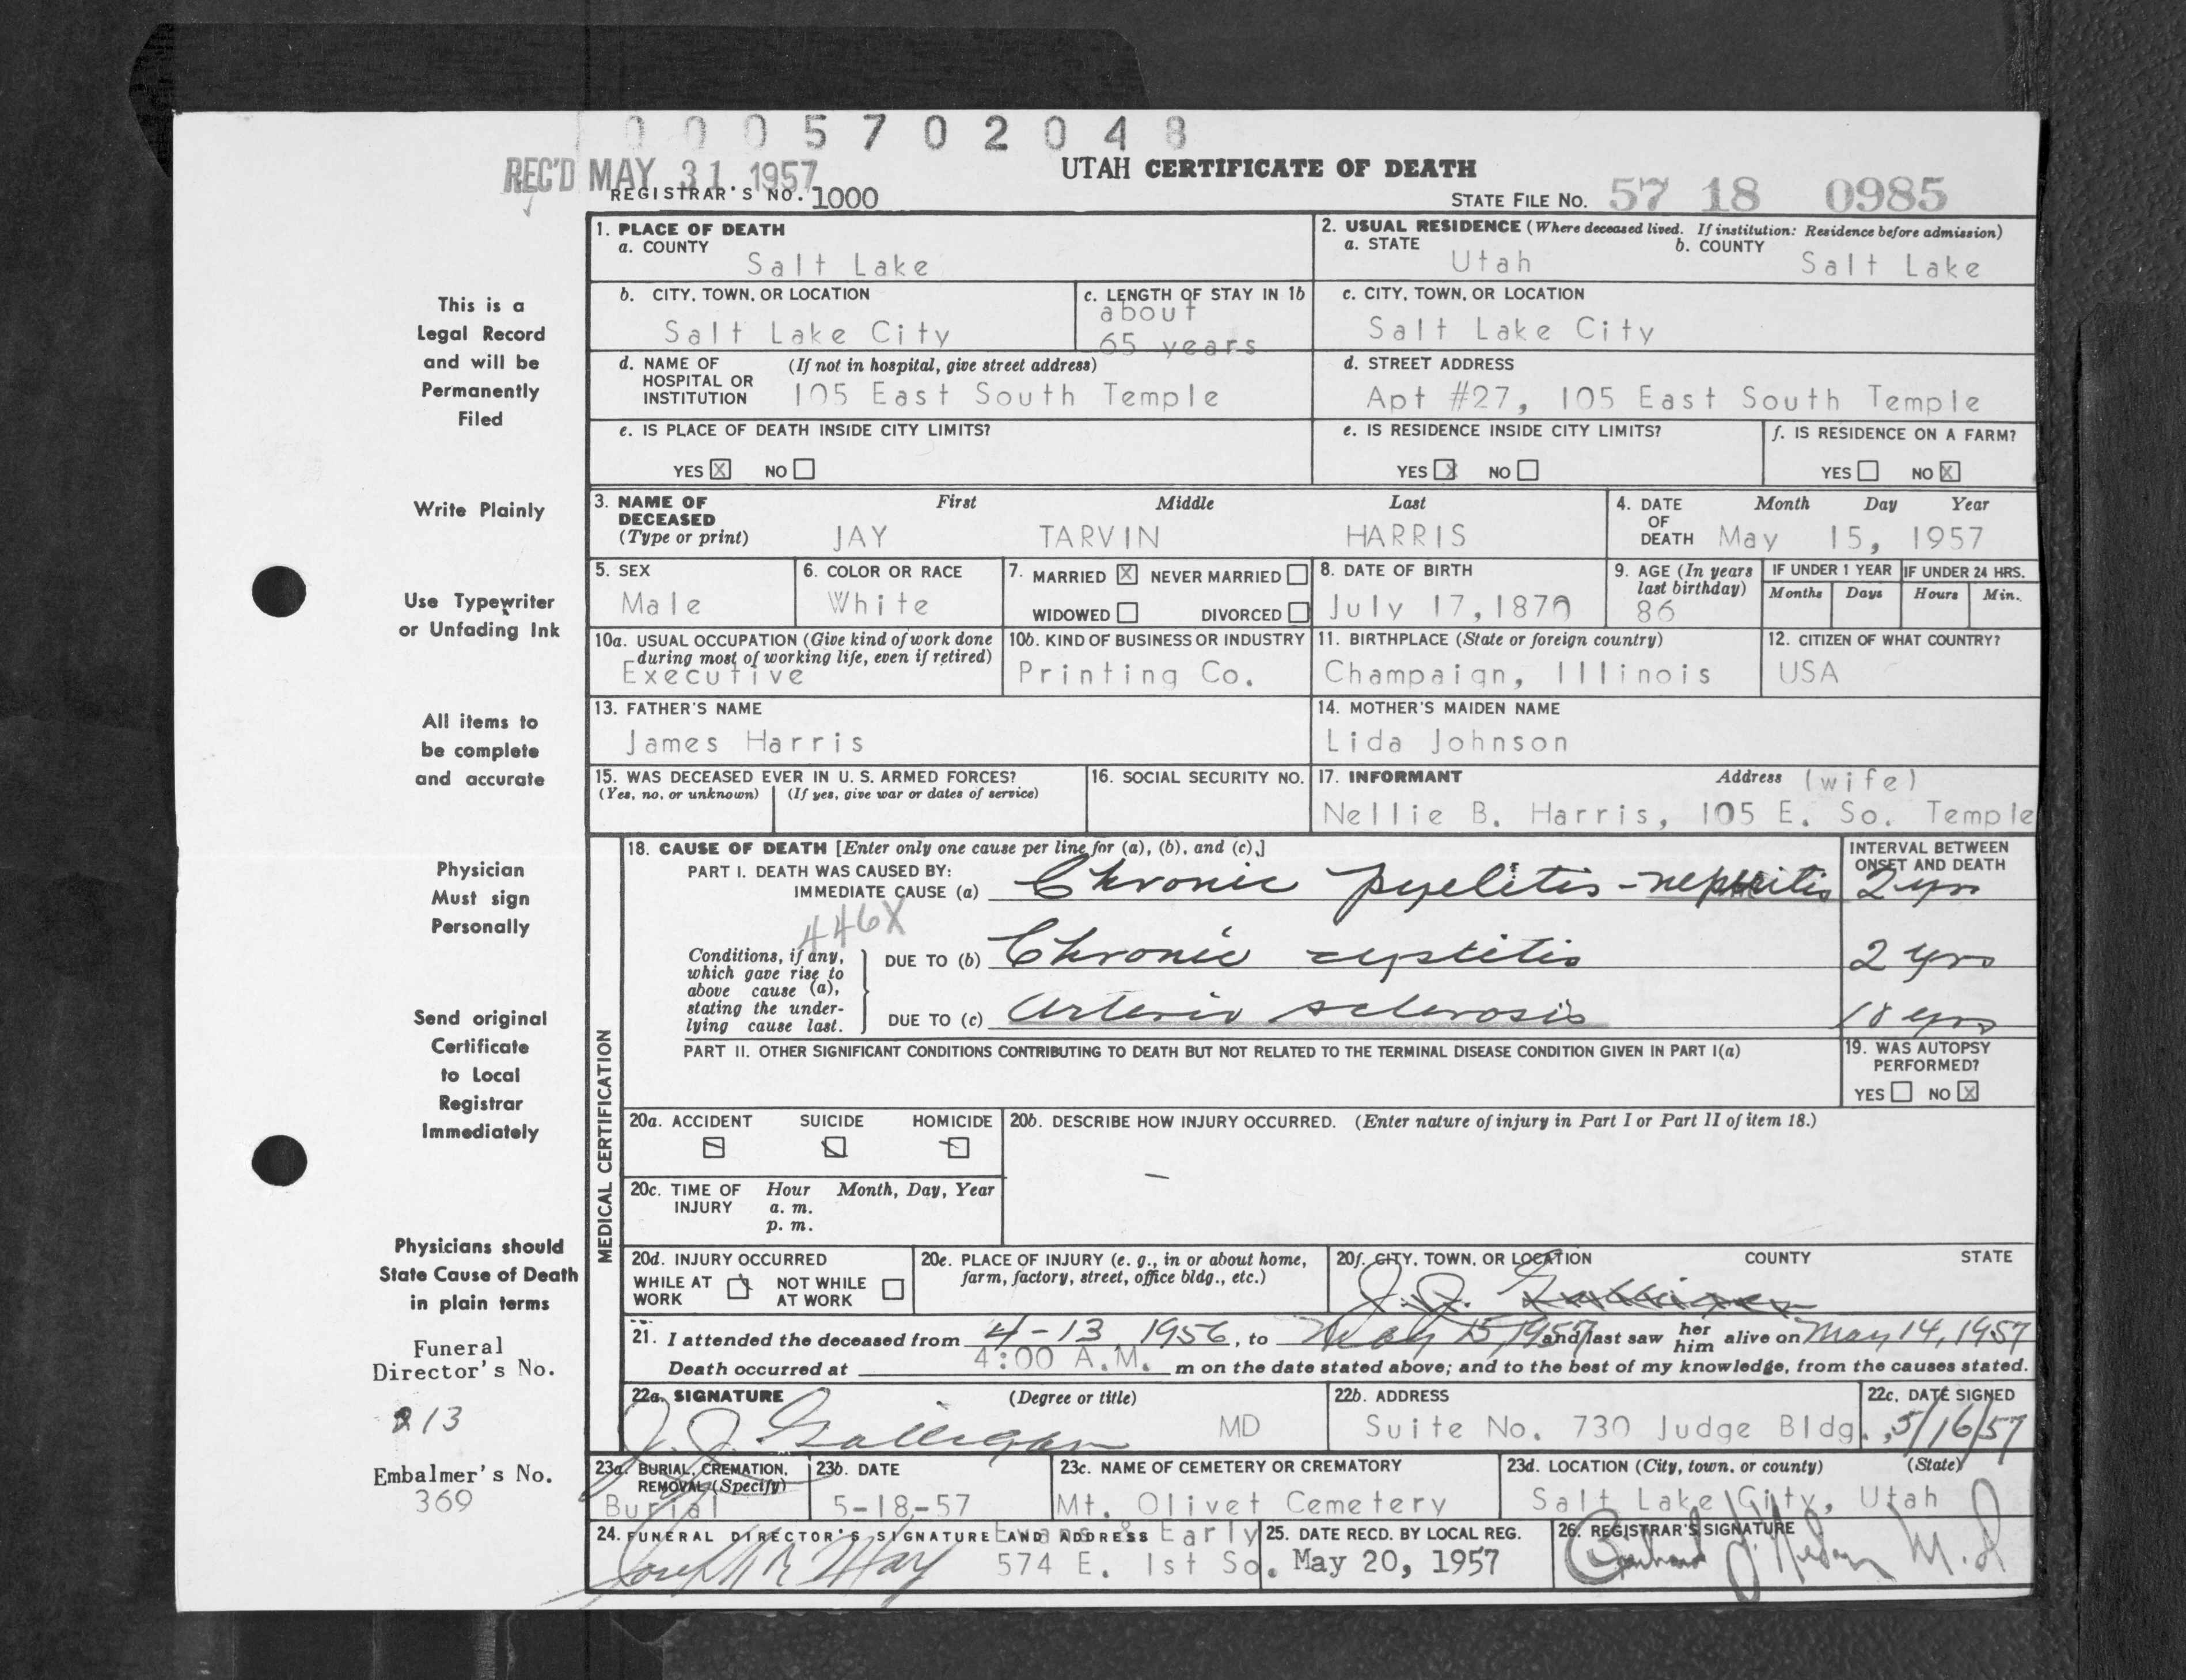 0 0 0 5 7 0 2 0 4 8
REC'D MAY 31 1957
UTAH CERTIFICATE OF DEATH
REGISTRAR'S NO. 1000
STATE FILE NO. 57 18 0985
This is a
Legal Record
and will be
Permanently
Filed
Write Plainly
Use Typewriter
or Unfading Ink
All items to
be complete
and accurate
Physician
Must sign
Personally
Send original
Certificate
to Local
Registrar
Immediately
Physicians should
State Cause of Death
in plain terms
Funeral
Director's No.
213
Embalmer's No.
369
1. PLACE OF DEATH
a. COUNTY
Salt Lake
2. USUAL RESIDENCE (Where deceased lived. If institution: Residence before admission)
a. STATE b. COUNTY
Utah Salt Lake
b. CITY, TOWN, OR LOCATION
Salt Lake City
c. LENGTH OF STAY IN 1b
about
65 years
c. CITY, TOWN, OR LOCATION
Salt Lake City
d. NAME OF (If not in hospital, give street address)
HOSPITAL OR
INSTITUTION 105 East South Temple
d. STREET ADDRESS
Apt #27, 105 East South Temple
e. IS PLACE OF DEATH INSIDE CITY LIMITS?
YES X NO
e. IS RESIDENCE INSIDE CITY LIMITS?
YES X NO
f. IS RESIDENCE ON A FARM?
YES NO X
3. NAME OF First Middle Last
DECEASED
(Type or print) JAY TARVIN HARRIS
4. DATE Month Day Year
OF
DEATH May 15, 1957
5. SEX
Male
6. COLOR OR RACE
White
7. MARRIED X NEVER MARRIED
WIDOWED DIVORCED
8. DATE OF BIRTH
July 17, 1870
9. AGE (In years
last birthday)
86
IF UNDER 1 YEAR IF UNDER 24 HRS.
Months Days Hours Min.
10a. USUAL OCCUPATION (Give kind of work done
during most of working life, even if retired)
Executive
10b. KIND OF BUSINESS OR INDUSTRY
Printing Co.
11. BIRTHPLACE (State or foreign country)
Champaign, Illinois
12. CITIZEN OF WHAT COUNTRY?
USA
13. FATHER'S NAME
James Harris
14. MOTHER'S MAIDEN NAME
Lida Johnson
15. WAS DECEASED EVER IN U. S. ARMED FORCES?
(Yes, no, or unknown) (If yes, give war or dates of service)
16. SOCIAL SECURITY NO.
17. INFORMANT Address (wife)
Nellie B. Harris, 105 E. So. Temple
MEDICAL CERTIFICATION
18. CAUSE OF DEATH [Enter only one cause per line for (a), (b), and (c).]
INTERVAL BETWEEN
ONSET AND DEATH
PART I. DEATH WAS CAUSED BY:
IMMEDIATE CAUSE (a) Chronic pyelitis - nephritis 2 yrs
446X
Conditions, if any,
which gave rise to
above cause (a),
stating the under-
lying cause last.
DUE TO (b) Chronic cystitis 2 yrs
DUE TO (c) Arterio sclerosis 10 yrs
PART II. OTHER SIGNIFICANT CONDITIONS CONTRIBUTING TO DEATH BUT NOT RELATED TO THE TERMINAL DISEASE CONDITION GIVEN IN PART I(a)
19. WAS AUTOPSY
PERFORMED?
YES NO X
20a. ACCIDENT SUICIDE HOMICIDE
20b. DESCRIBE HOW INJURY OCCURRED. (Enter nature of injury in Part I or Part II of item 18.)
—
20c. TIME OF Hour Month, Day, Year
INJURY a. m.
p. m.
20d. INJURY OCCURRED
WHILE AT NOT WHILE
WORK AT WORK
20e. PLACE OF INJURY (e. g., in or about home,
farm, factory, street, office bldg., etc.)
20f. CITY, TOWN, OR LOCATION COUNTY STATE
J. J. Galligan
21. I attended the deceased from 4-13 1956, to May 15 1957 and last saw her him alive on May 14, 1957
Death occurred at 4:00 A.M. m on the date stated above; and to the best of my knowledge, from the causes stated.
22a. SIGNATURE (Degree or title)
J. J. Galligan MD
22b. ADDRESS
Suite No. 730 Judge Bldg.,
22c. DATE SIGNED
5/16/57
23a. BURIAL, CREMATION,
REMOVAL (Specify)
Burial
23b. DATE
5-18-57
23c. NAME OF CEMETERY OR CREMATORY
Mt. Olivet Cemetery
23d. LOCATION (City, town, or county) (State)
Salt Lake City, Utah
24. FUNERAL DIRECTOR'S SIGNATURE AND ADDRESS
Evans & Early
574 E. 1st So.
25. DATE RECD. BY LOCAL REG.
May 20, 1957
26. REGISTRAR'S SIGNATURE
M.D